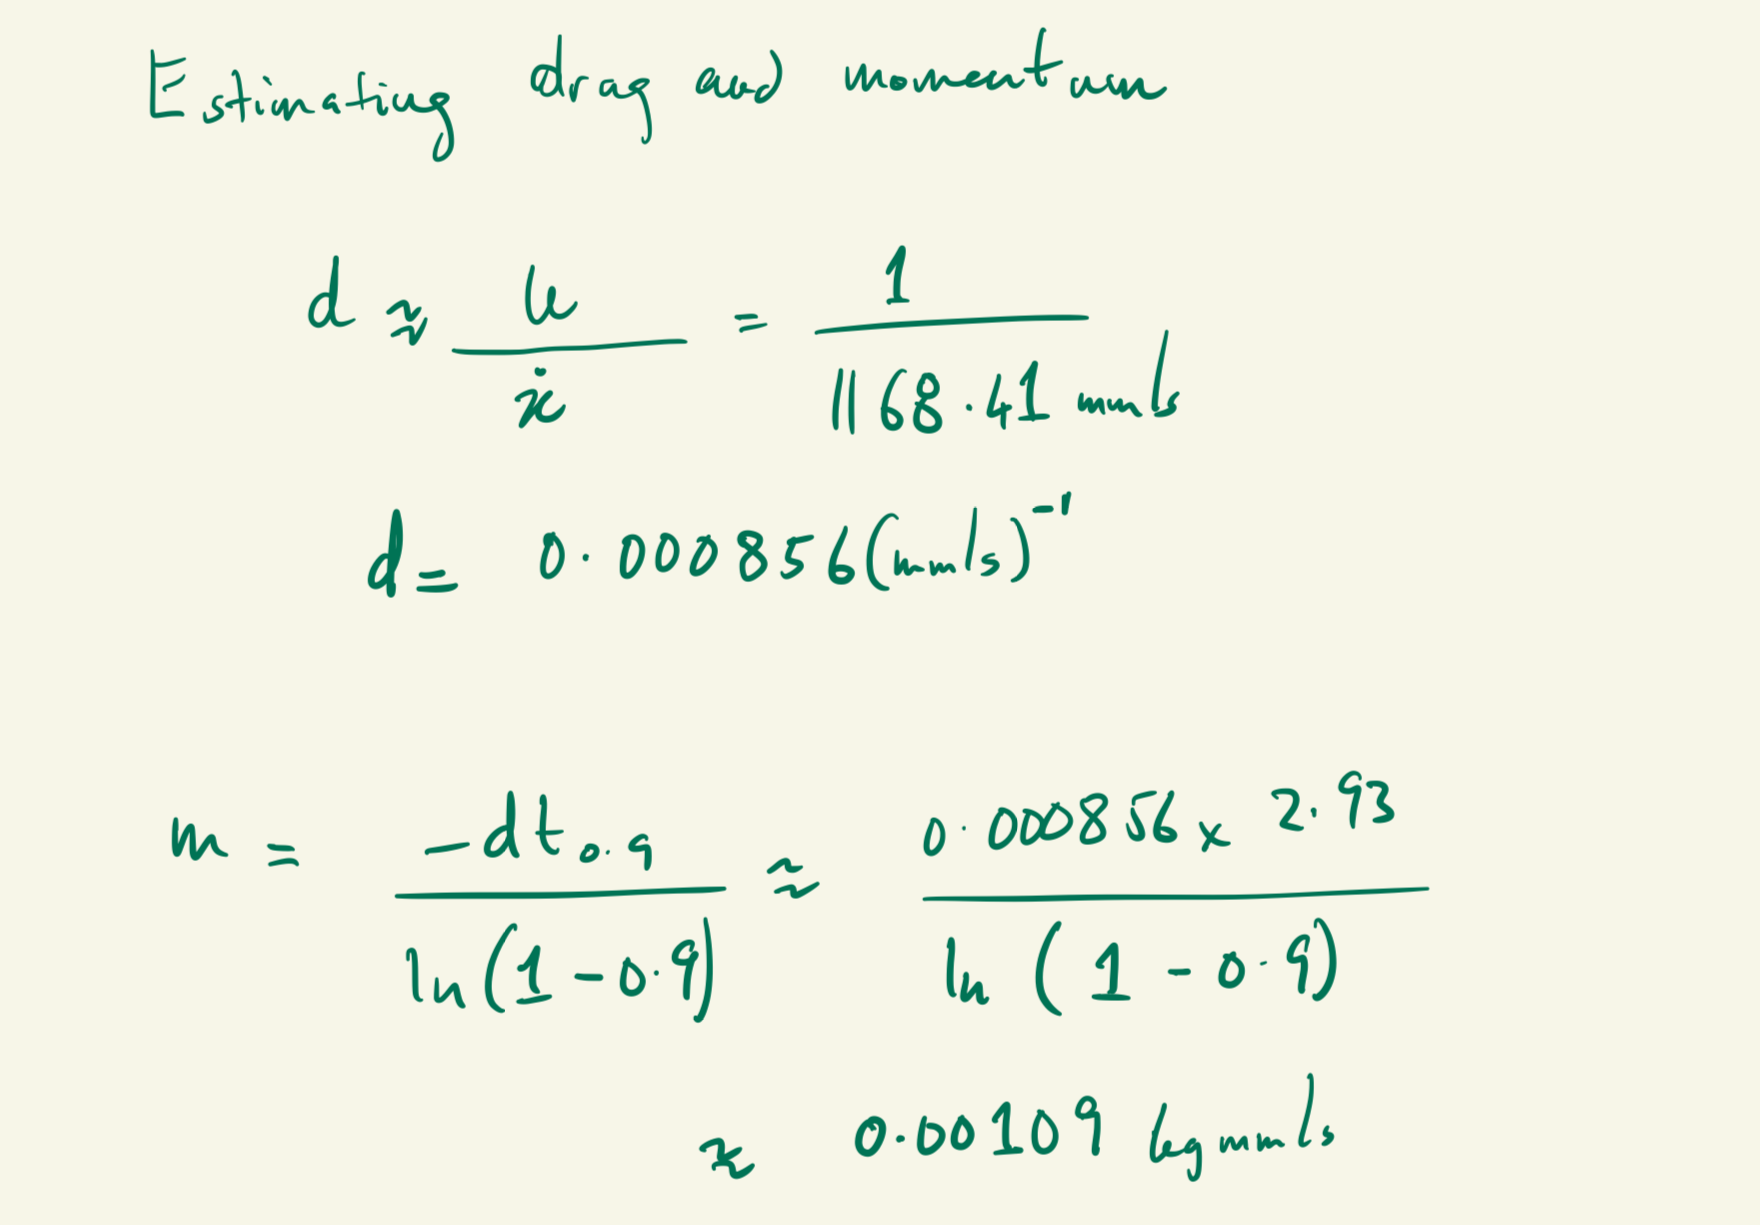 Estimating drag and momentum
d ≈ u / ẋ = 1 / 1168.41 mm/s
d = 0.000856 (mm/s)⁻¹
m = -dt₀.₉ / ln(1-0.9) ≈ 0.000856 x 2.93 / ln(1-0.9)
≈ 0.00109 kg mm/s